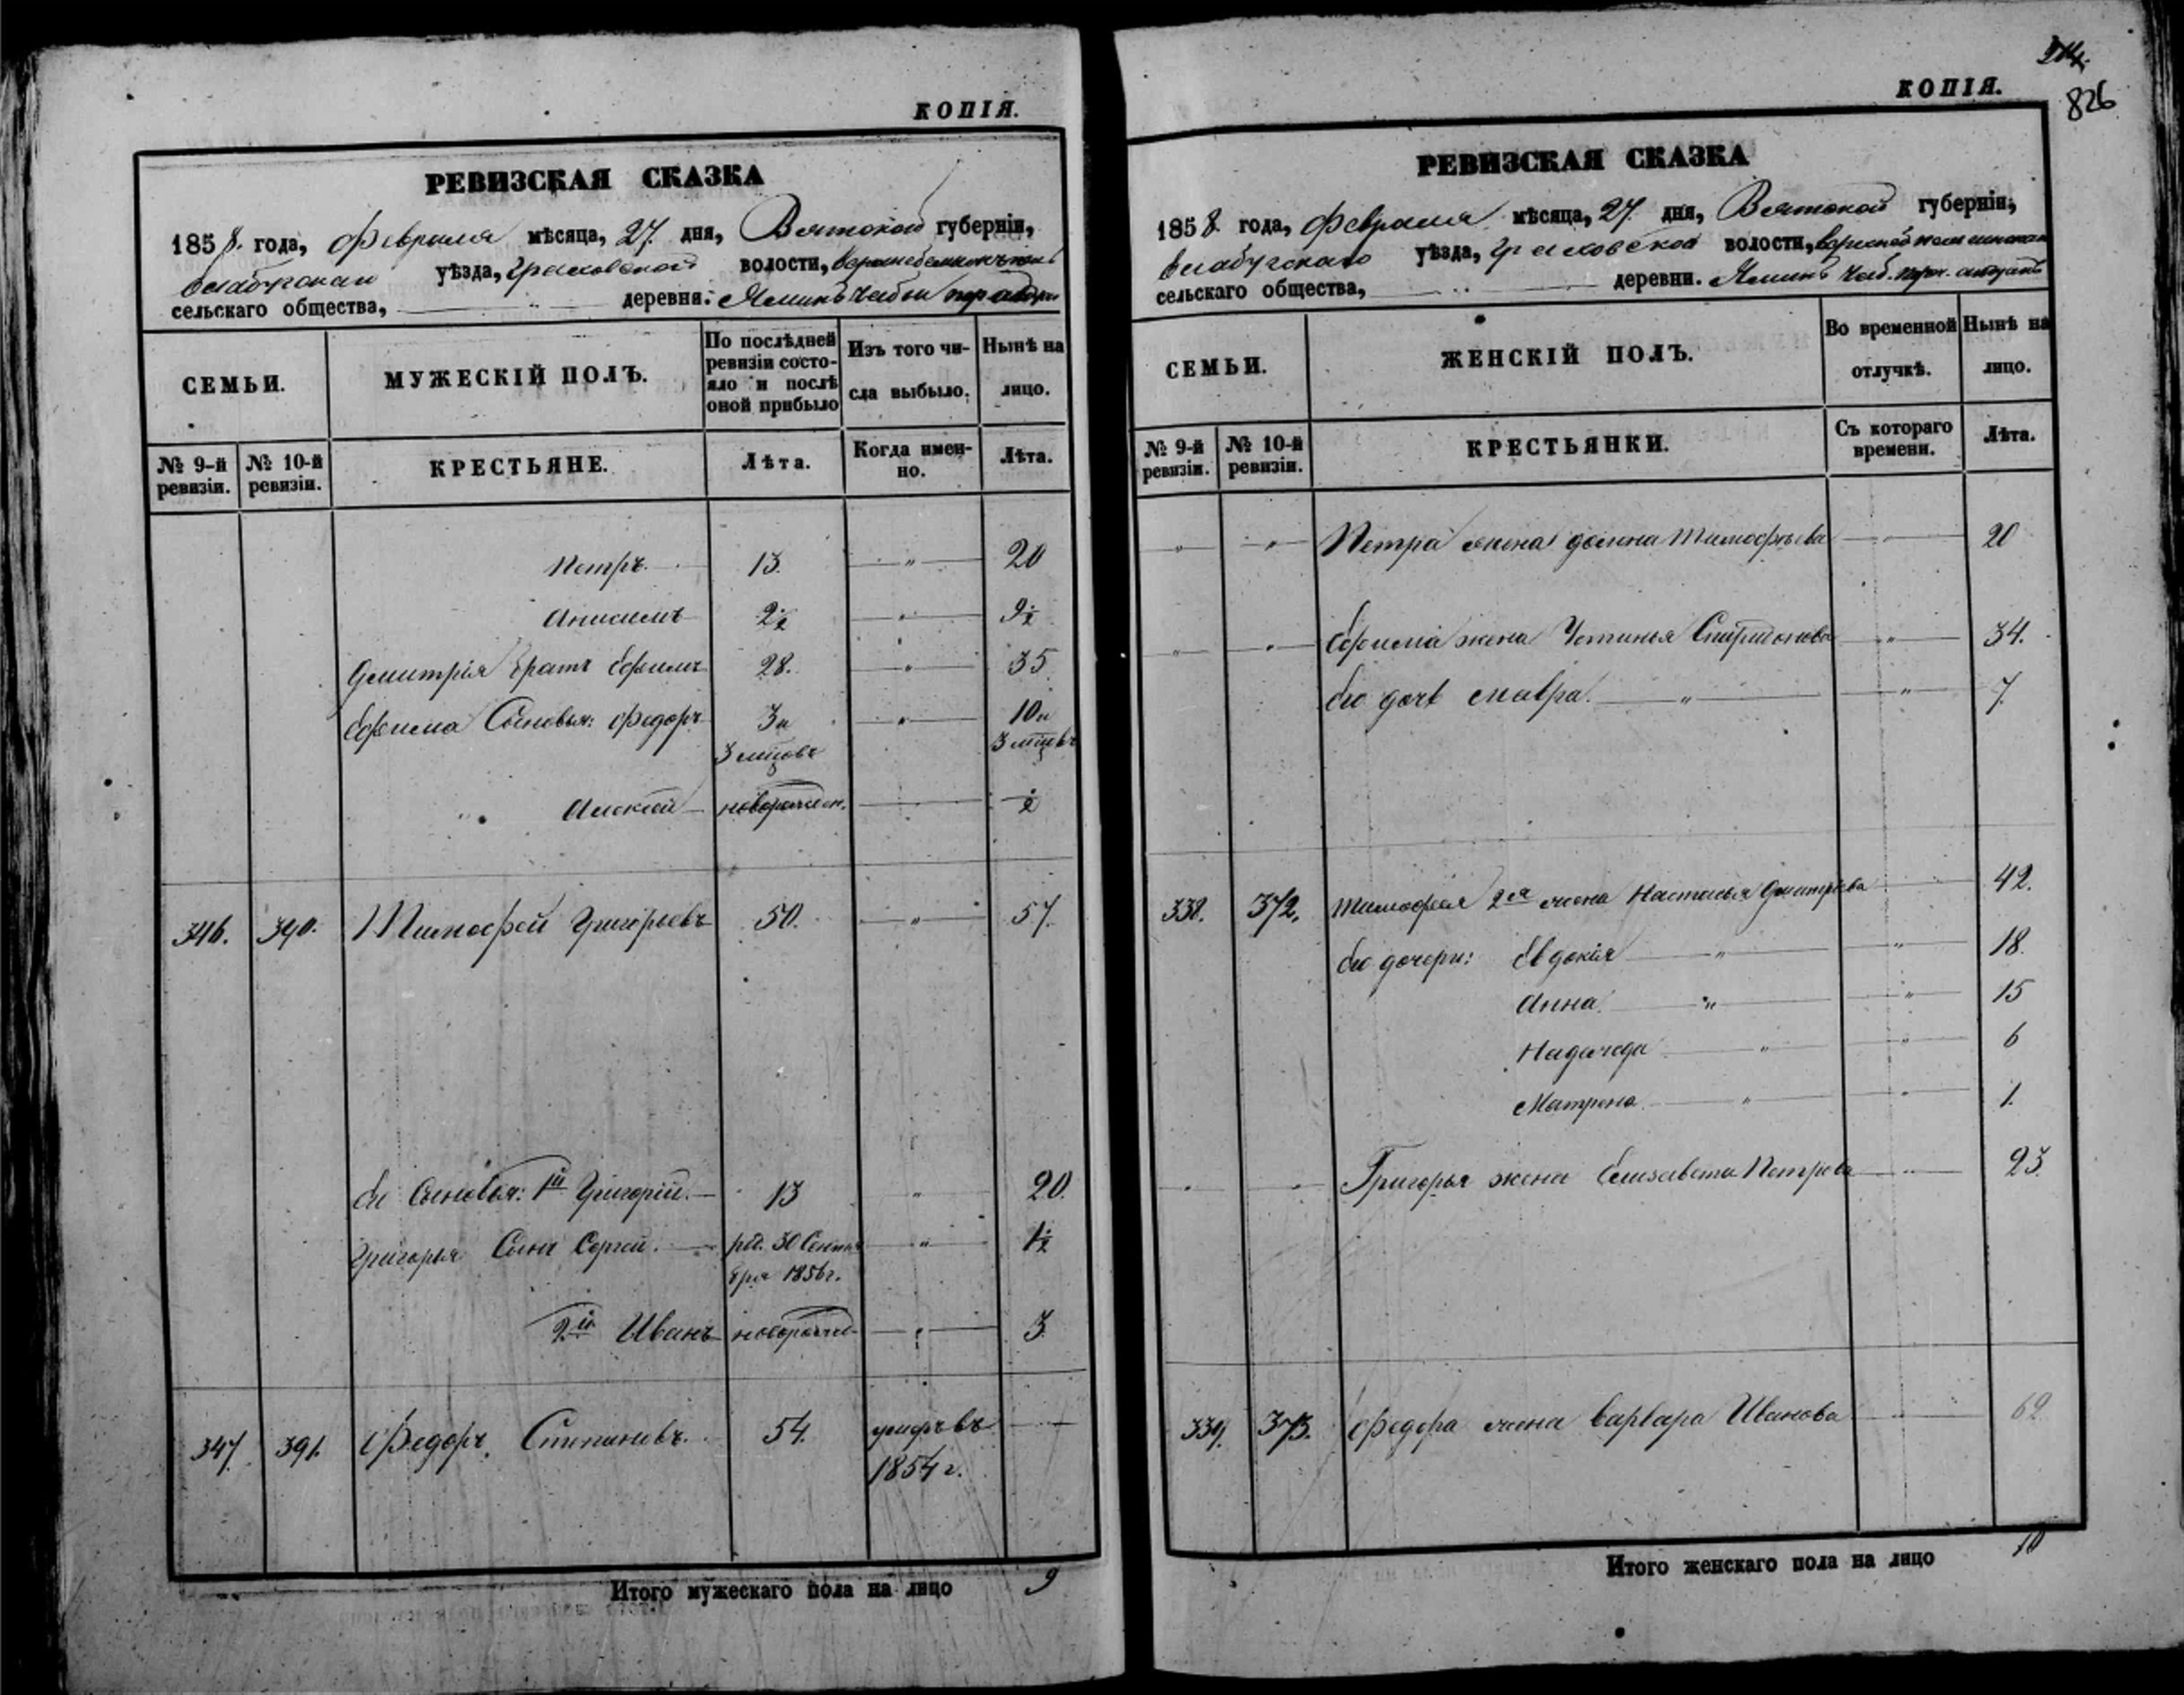 КОПІЯ.
РЕВИЗСКАЯ СКАЗКА
1858. года, Февраля мѣсяца, 27. дня, Вятской губерніи,
Елабугскаго уѣзда, Граховской волости,
сельскаго общества, деревни:
СЕМЬИ.
МУЖЕСКІЙ ПОЛЪ.
По послѣдней ревизіи состояло и послѣ оной прибыло
Изъ того числа выбыло.
Нынѣ на лицо.
№ 9-й ревизіи.
№ 10-й ревизіи.
КРЕСТЬЯНЕ.
Лѣта.
Когда именно.
Лѣта.
Петръ. 13. " 20
Анисимъ 2½ " 9½
Дмитрія братъ Ефимъ 28. " 35.
Ефима Сыновья: Федоръ 3 и " 10 и
3 мцовъ 3 мцовъ
Алексѣй новорожден. ½
346. 390. Тимофей Григорьевъ 50. " 57.
Ег Сыновья: 1й Григорій. 13 " 20.
Григорья Сынъ Сергей. рд. 30 Сентя " 1½
бря 1856 г.
2й Иванъ новорожден " 3.
347. 391. Федоръ Степановъ. 54. умеръ въ
1854 г.
Итого мужескаго пола на лицо 9
КОПІЯ.
826
РЕВИЗСКАЯ СКАЗКА
1858. года, Февраля мѣсяца, 27. дня, Вятской губерніи,
Елабугскаго уѣзда, Граховской волости,
сельскаго общества, деревни.
СЕМЬИ.
ЖЕНСКІЙ ПОЛЪ.
Во временной отлучкѣ.
Нынѣ на лицо.
№ 9-й ревизіи.
№ 10-й ревизіи.
КРЕСТЬЯНКИ.
Съ котораго времени.
Лѣта.
" " Петра жена Тимофѣева " 20
" " Ефима жена Устинья Спиридонова " 34.
Его дочь Мавра. " " 7.
338. 372. Тимофея 2я жена Настасья Дмитріева 42.
Его дочери: Евдокія " " 18.
Анна. " " 15
Надежда " " 6
Матрена. " " 1.
" Григорья жена Елизавета Петрова " 23.
339. 373. Федора жена Варвара Иванова 62.
Итого женскаго пола на лицо 10